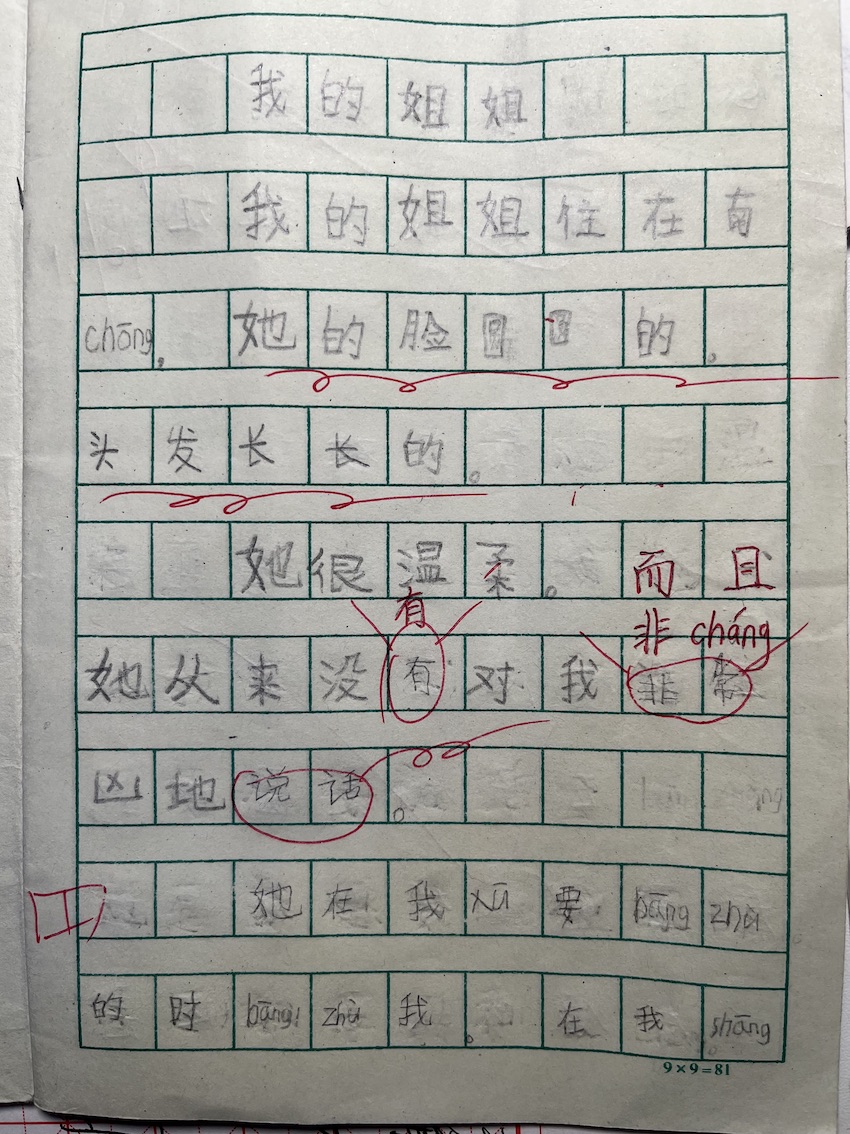 我的姐姐
我的姐姐住在南
chōng,她的脸圆圆的。
头发长长的。
她很温柔。而且
有
非 cháng
她从来没有对我非常
凶地说话。
她在我xū要bāng zhù
的时bāng zhù我。在我shāng
9×9=81